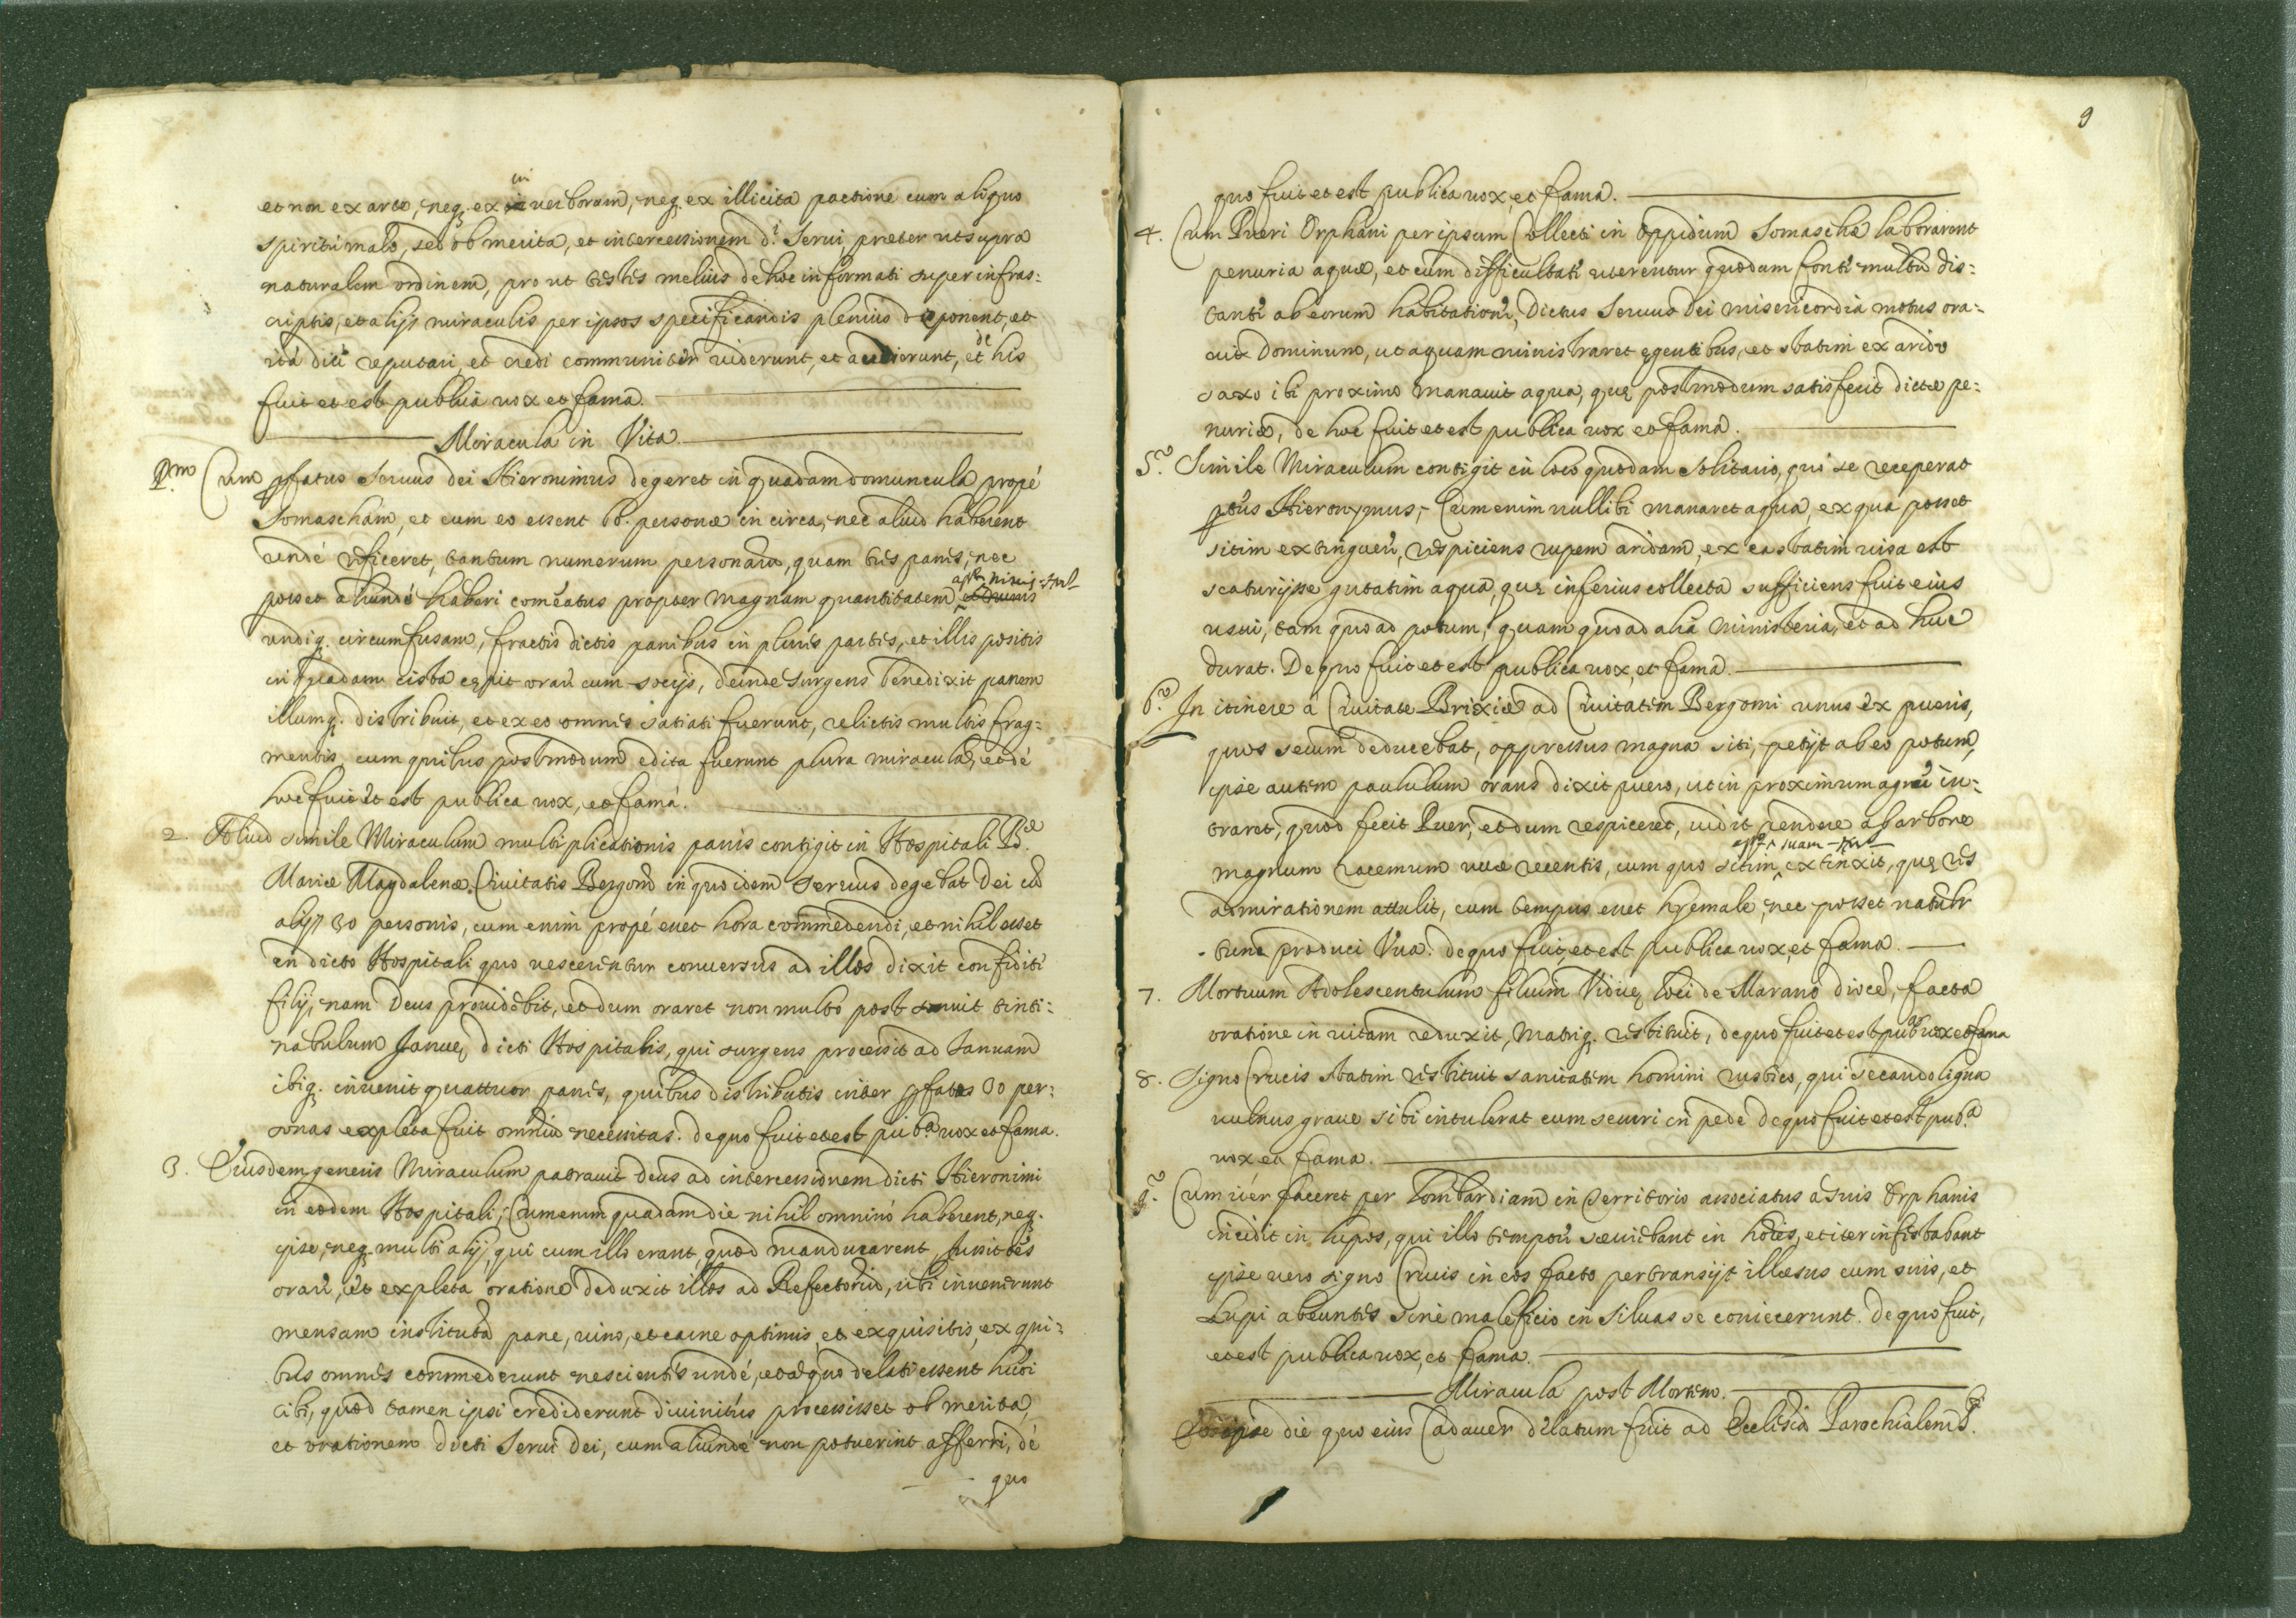 et non ex arte, neq. ex ui uerborum, neq. ex illicita pactione cum aliquo
spiritu malo, sed ob merita, et intercessionem d.i Serui præter ut supra
naturalem ordinem, pro ut testes melius de hoc informati super infras:
criptis, et alijs miraculis per ipsos specificandis plenius deponent, et
ità dici reputari, et credi communiter uiderunt, et audierunt, et de his
fuit et est publica uox et fama.
Miracula in Vita
P.mo Cum pfatus Seruus dei Hieronimus degeret in quadam domuncula propé
Somascham, et cum eo essent 60. personæ in circa, nec aliud haberent
undé reficeret tantum numerum personarū, quam tres panes, nec
posset aliundé haberi comeatus propter magnam quantitatem niuis
undiq. circumfusam, fractis dictis panibus in plures partes, et illis positis
in quadam cista cępit orare cum socijs, deinde surgens benedixit panem
illumq. distribuit, et ex eo omnes satiati fuerunt, relictis multis frag:
mentis cum quibus postmodum edita fuerunt plura miracula, et dé
hoc fuit et est publica uox, et fama.
2. Aliud simile Miraculum multiplicationis panis contigit in Hospitali B.æ
Mariæ Magdalenæ Ciuitatis Bergomi in quo idem seruus degebat Dei cū
alijs 30 personis, cum enim propé esset hora commedendi, et nihil esset
in dicto Hospitali quo uescerentur conuersus ad illos dixit confidite
filij, nam Deus prouidebit, et dum oraret non multo post sonuit tinti:
nabulum Januę dicti Hospitalis, qui surgens processit ad Januam
ibiq. inuenit quattuor panes, quibus distributis inter pfatas 30 per:
sonas expleta fuit omniū necessitas. de quo fuit et est pub.a uox et fama.
3. Eiusdem generis Miraculum patrauit Deus ad intercessionem dicti Hieronimi
in eodem Hospitali; Cum enim quadam die nihil omninò haberent, neq.
ipse, neq. multi alij, qui cum illo erant, quod manducarent, iussit eos
orare, et expleta oratione deduxit illos ad Refectoriū, ubi inuenerunt
mensam instructā pane, uino, et carne optimis et exquisitis, ex qui:
bus omnes commederunt nescientes undé, et à quo delati essent hmoi
cibi, quod tamen ipsi crediderunt diuinitùs processisset ob merita,
et orationem dicti Serui dei, cum aliundé non potuerint afferri, dé
quo
9
quo fuit et est publica uox, et fama.
4. Cum Pueri Orphani per ipsum Collecti in oppidum Somaschæ laborarent
penuria aquæ, et cum difficultate uterentur quodam fonte multū dis:
tante ab eorum habitatione, Dictus Seruus Dei misericordia motus ora:
uit Dominum, ut aquam ministraret egentibus, et statim ex arido
saxo ibi proximo manauit aqua, quę postmodum satisfecit dictæ pe:
nuriæ, de hoc fuit et est publica uox et fama.
5.o Simile Miraculum contigit in loco quodam solitario, quò se receperat
ptus Hieronymus; Cum enim nullibi manaret aqua, ex qua posset
sitim extinguere, respiciens rupem aridam, ex ea statim uisa est
scaturijsse gutatim aqua, quę inferius collecta sufficiens fuit eius
usui, tam quo ad potum, quam quo ad alia ministeria, et ad huc
durat. De quo fuit et est publica uox, et fama.
6.o In itinere à Ciuitate Brixiæ ad Ciuitatem Bergomi unus ex pueris,
quos secum deducebat, oppressus magna siti, petijt ab eo potum,
ipse autem paululum orans dixit puero, ut in proximum agrum in:
traret, quod fecit Puer, et dum respiceret, uidit pendere ab arbore
magnum racemum uuæ recentis, cum quo sitim suam extinxit, quę res
admirationem attulit, cum tempus esset hyemale, nec posset naturlr
tunc produci Vua. de quo fuit, et est publica uox, et fama.
7. Mortuum Adolescentulum filium Viduę loci de Marano diocę, facta
oratione in uitam reduxit, Matriq. restituit, de quo fuit et est pub.a uox et fama
8. Signo Crucis statim restituit sanitatem homini rustico, qui secando ligna
uulnus graue sibi intulerat cum securi in pede de quo fuit et est pub.a
uox et fama.
9.o Cum iter faceret per Lombardiam in Territorio associatus à suis Orphanis
incidit in lupos, qui illo tempore sæuiebant in hoies, et iter infestabant
ipse uero signo Crucis in eos facto pertransijt illæsus cum suis, et
Lupi abeuntes sine maleficio in siluas se coniecerunt. de quo fuit,
et est publica uox, et fama.
Miracula post Mortem.
ipse die quo eius Cadauer delatum fuit ad Ecclesiā Parochialem S.ti